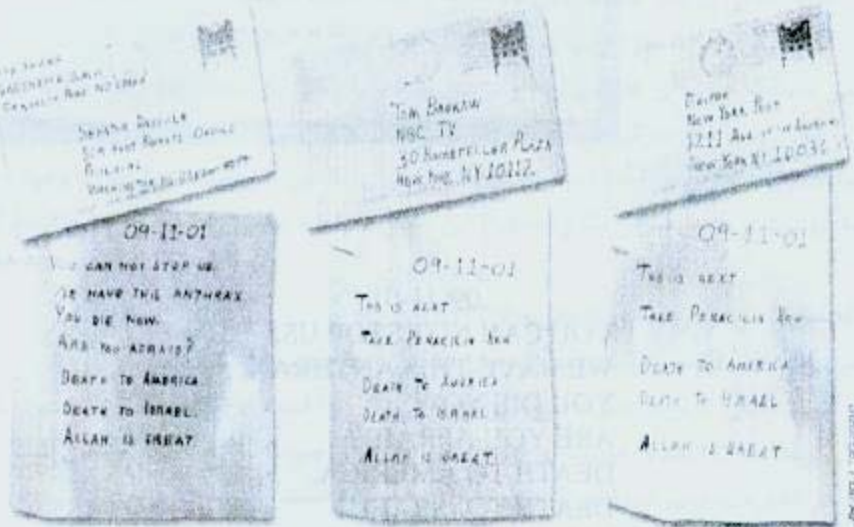 SENATOR DASCHLE
509 HART SENATE OFFICE
BUILDING
09-11-01
YOU CAN NOT STOP US.
WE HAVE THIS ANTHRAX.
YOU DIE NOW.
ARE YOU AFRAID?
DEATH TO AMERICA.
DEATH TO ISRAEL.
ALLAH IS GREAT.
TOM BROKAW
NBC TV
30 ROCKEFELLER PLAZA
NEW YORK NY 10112
09-11-01
THIS IS NEXT
TAKE PENACILIN NOW
DEATH TO AMERICA
DEATH TO ISRAEL
ALLAH IS GREAT
EDITOR
NEW YORK POST
1211 AVE. OF THE AMERICAS
NEW YORK NY 10036
09-11-01
THIS IS NEXT
TAKE PENACILIN NOW
DEATH TO AMERICA
DEATH TO ISRAEL
ALLAH IS GREAT